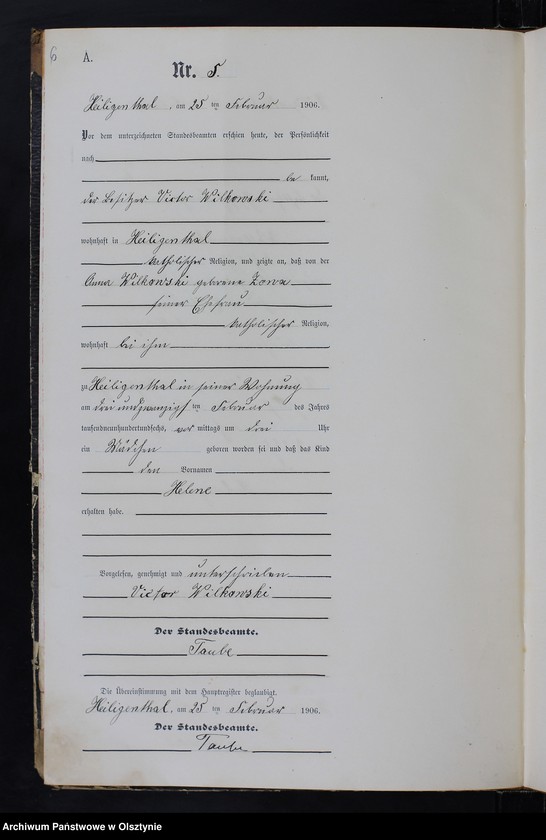 6
A.
Nr. 5.
Heiligenthal, am 25 ten Februar 1906.
Vor dem unterzeichneten Standesbeamten erschien heute, der Persönlichkeit
nach
be kannt,
der Besitzer Victor Wilkowski
wohnhaft in Heiligenthal
katholischer Religion, und zeigte an, daß von der
Anna Wilkowski geborene Zowa
seiner Ehefrau
katholischer Religion,
wohnhaft bei ihm
zu Heiligenthal in seiner Wohnung
am drei und zwanzigs ten Februar des Jahres
tausendneunhundertundsechs, vor mittags um drei Uhr
ein Mädchen geboren worden sei und daß das Kind
den Vornamen
Helene
erhalten habe.
Vorgelesen, genehmigt und unterschrieben
Victor Wilkowski
Der Standesbeamte.
Taube
Die Übereinstimmung mit dem Hauptregister beglaubigt.
Heiligenthal, am 25 ten Februar 1906.
Der Standesbeamte.
Taube
Archiwum Państwowe w Olsztynie